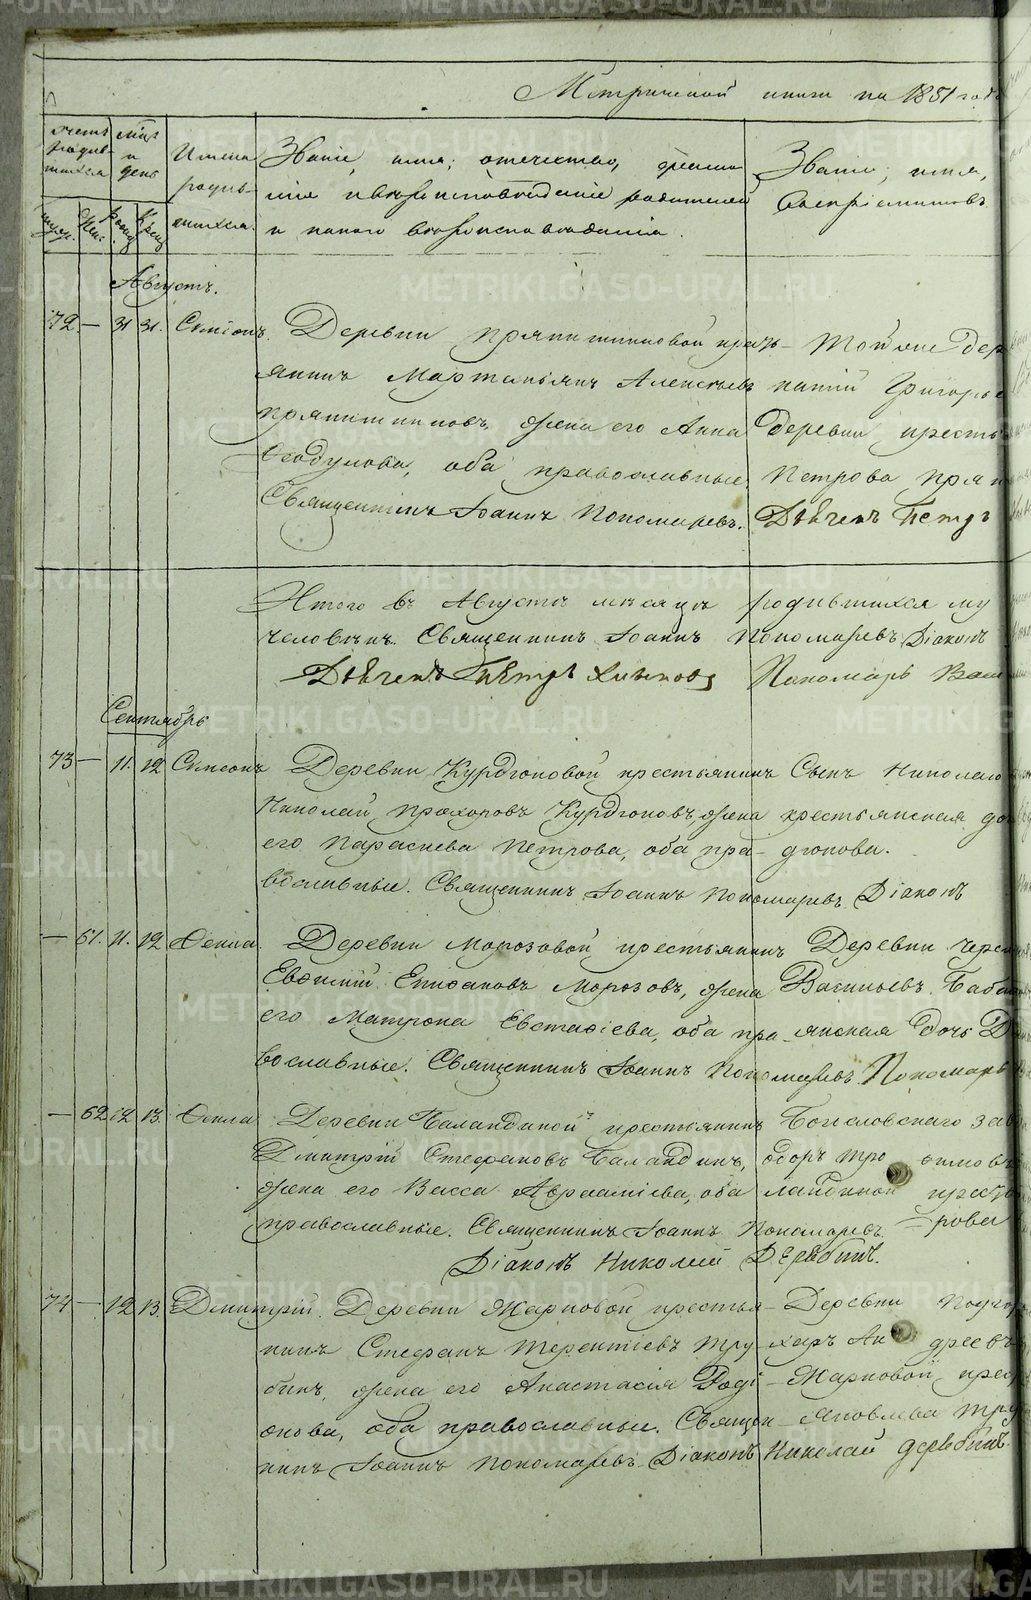 Метрической книги на 1851 годъ
счетъ родив-шихся
мсц и день
Имена родив-шихся.
Званіе, имя, отечество, фамилія и вѣроисповѣданіе родителей и какого вѣроисповѣданія.
Званіе, имя, воспріемниковъ
муж. жен. рожд. крещ.
Августъ.
72 — 31 31. Симеонъ. Деревни Пряничниковой кресть-
янинъ Мартиніянъ Алексѣевъ
Пряничниковъ, жена его Анна
Ѳеодулова, оба православные.
Священникъ Іоаннъ Пономаревъ.
Той же дер
Григорье
деревни кресть
Петрова Прян
Дьячекъ Петръ
Итого въ Августѣ мѣсяцѣ родившихся му
человѣкъ. Священникъ Іоаннъ Пономаревъ Діаконъ
Дьячекъ Петръ Пономарь
Сентябрь
73 — 11. 12 Симеонъ Деревни Курдюковой крестьянинъ
Николай Прохоровъ Курдюковъ, жена
его Параскева Петрова, оба пра-
вославные. Священникъ Іоаннъ Пономаревъ Діаконъ
Сынъ Николая
крестьянская до
дюкова.
— 61. 11. 12 Ѳекла Деревни Морозовой крестьянинъ
Евѳимій Епифановъ Морозовъ, жена
его Матрона Евстафіева, оба пра-
вославные. Священникъ Іоаннъ Пономаревъ Пономарь
Деревни
Васильевъ Баба
янская дочь
— 62 12 13. Ѳекла Деревни Баландиной крестьянинъ
Дмитрій Стефановъ Баландинъ,
жена его Васса Авраамієва, оба
православные. Священникъ Іоаннъ Пономаревъ
Діаконъ Николай Дерябинъ.
Богословскаго зав
ѳодоръ Тро фимовъ
ландиной крест
рова
74 — 12 13. Дмитрій. Деревни Марковой крестья-
нинъ Стефанъ Терентіевъ Тру
бинъ, жена его Анастасія Роді-
онова, оба православные. Священ-
никъ Іоаннъ Пономаревъ Діаконъ Николай Дерябинъ.
Деревни
харъ Ан дреевъ
Марковой крес
Яковлева Тру
METRIKI.GASO-URAL.RU